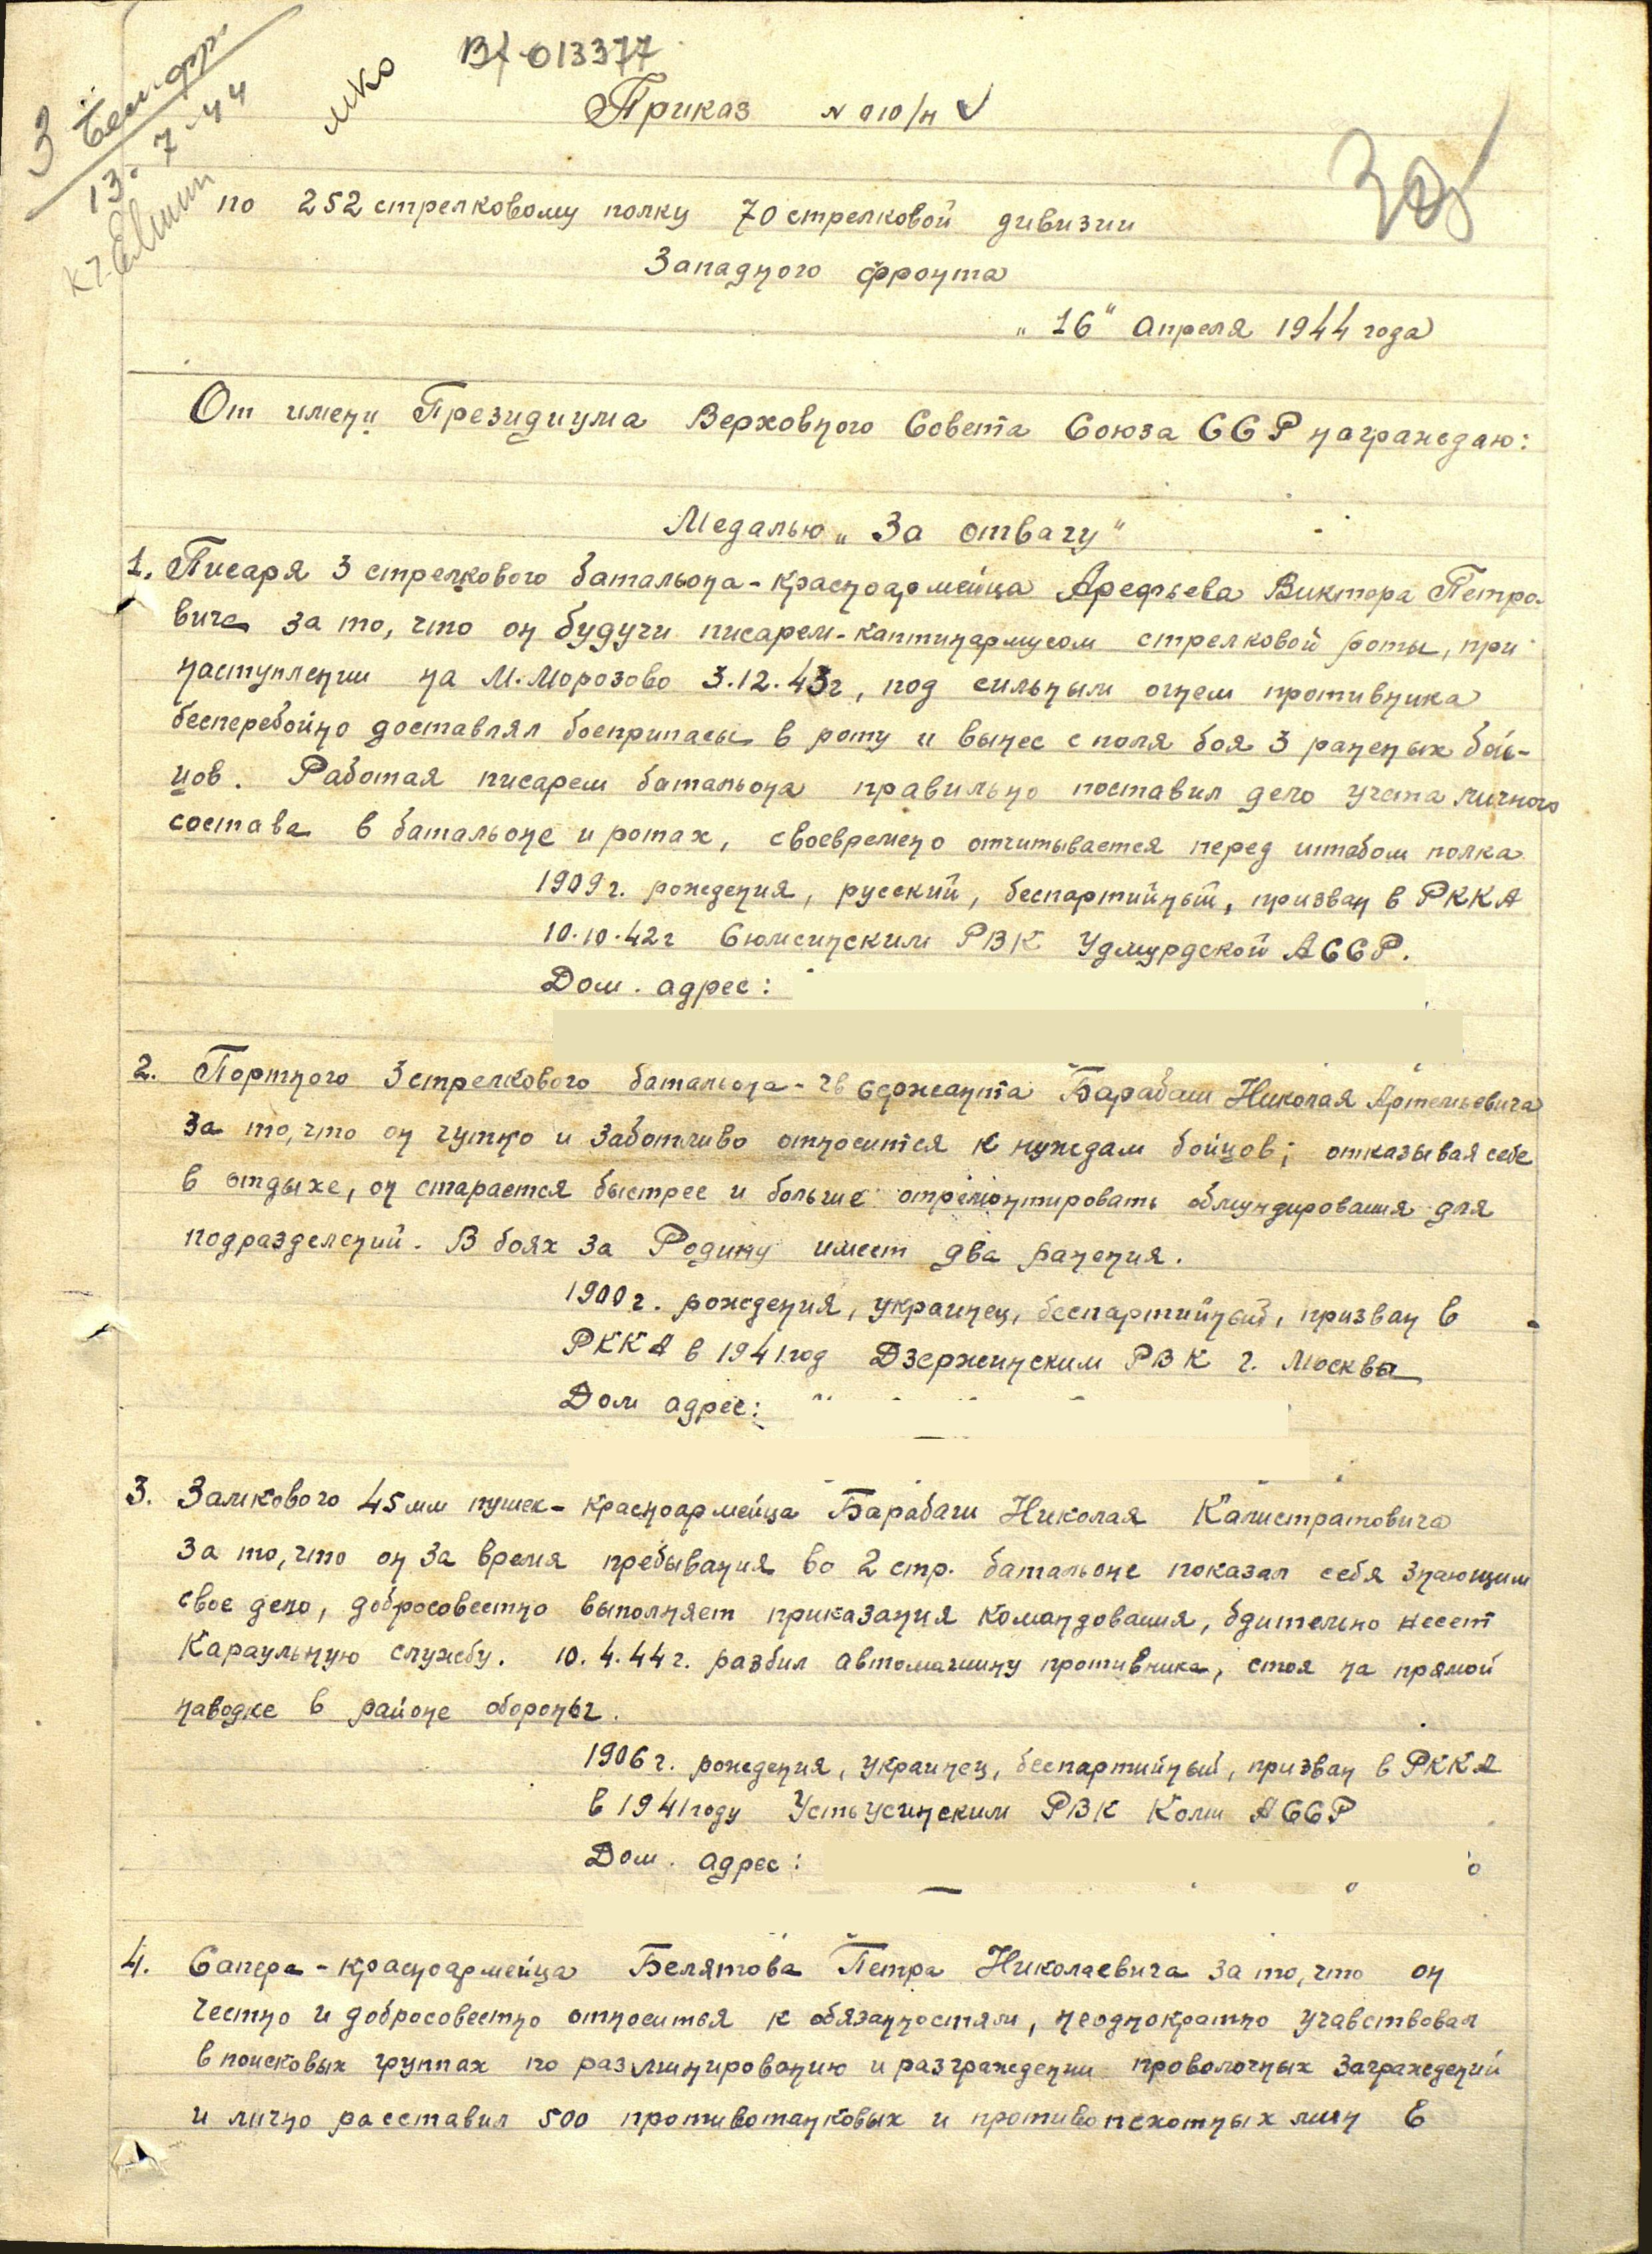 3 Бел. фр.
13-7-44
мко
Вх 013377
Приказ N 010/н
по 252 стрелковому полку 70 стрелковой дивизии
Западного фронта
"16" апреля 1944 года
От имени Президиума Верховного Совета Союза ССР награждаю:
Медалью "За отвагу"
1. Писаря 3 стрелкового батальона - красноармейца Арефьева Виктора Петро-
вича за то, что он будучи писарем-каптинармусом стрелковой роты, при
наступлении на М. Морозово 3.12.43г, под сильным огнем противника
бесперебойно доставлял боеприпасы в роту и вынес с поля боя 3 раненых бой-
цов. Работая писарем батальона правильно поставил дело учета личного
состава в батальоне и ротах, своевремено отчитывается перед штабом полка
1909 г. рождения, русский, беспартийный, призван в РККА
10.10.42г Сюмсинским РВК Удмурдской АССР.
Дом. адрес:
2. Портного 3 стрелкового батальона - гв сержанта Барабаш Николая Артемьевича
за то, что он чутко и заботливо относится к нуждам бойцов; отказывая себе
в отдыхе, он старается быстрее и больше отремонтировать обмундирования для
подразделений. В боях за Родину имеет два ранения.
1900 г. рождения, украинец, беспартийный, призван в
РККА в 1941 год Дзержинским РВК г. Москвы
Дом адрес:
3. Замкового 45мм пушек - красноармейца Барабаш Николая Калистратовича
за то, что он за время пребывания во 2 стр. батальоне показал себя знающим
свое дело, добросовестно выполняет приказания командования, бдительно несет
караульную службу. 10.4.44 г. разбил автомашину противника, стоя на прямой
наводке в районе обороны.
1906 г. рождения, украинец, беспартийный, призван в РККА
в 1941 году Усть Усинским РВК Коми АССР
Дом. адрес:
4. Сапера - красноармейца Белятова Петра Николаевича за то, что он
честно и добросовестно относиться к обязанностям, неоднократно учавствовал
в поисковых группах по разминированию и разграждении проволочных заграждений
и лично расставил 500 противотанковых и противопехотных мин в